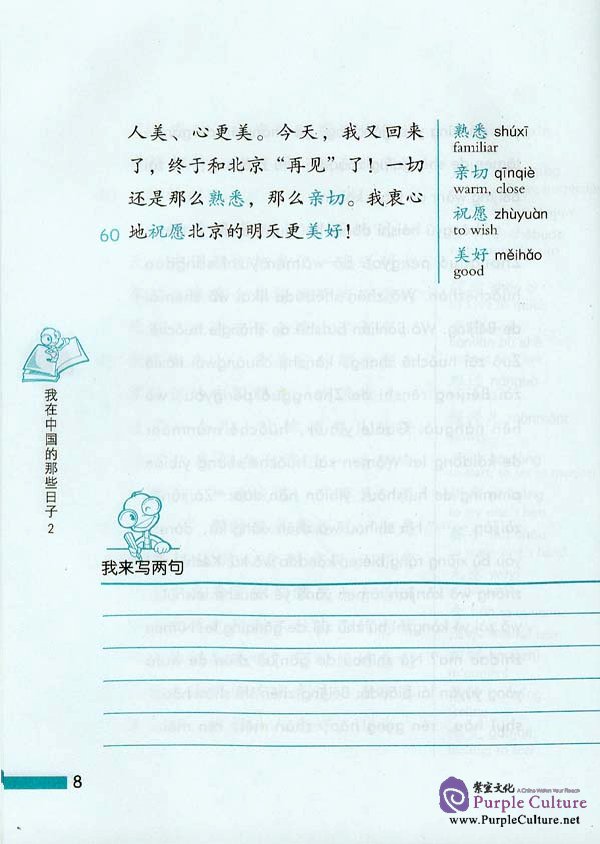 人美、心更美。今天，我又回来
了，终于和北京“再见”了！一切
还是那么熟悉，那么亲切。我衷心
60 地祝愿北京的明天更美好！
熟悉 shúxī
familiar
亲切 qīnqiè
warm, close
祝愿 zhùyuàn
to wish
美好 měihǎo
good
我在中国的那些日子 2
我来写两句
8
紫宝文化 A China Within Your Reach
Purple Culture
www.PurpleCulture.net